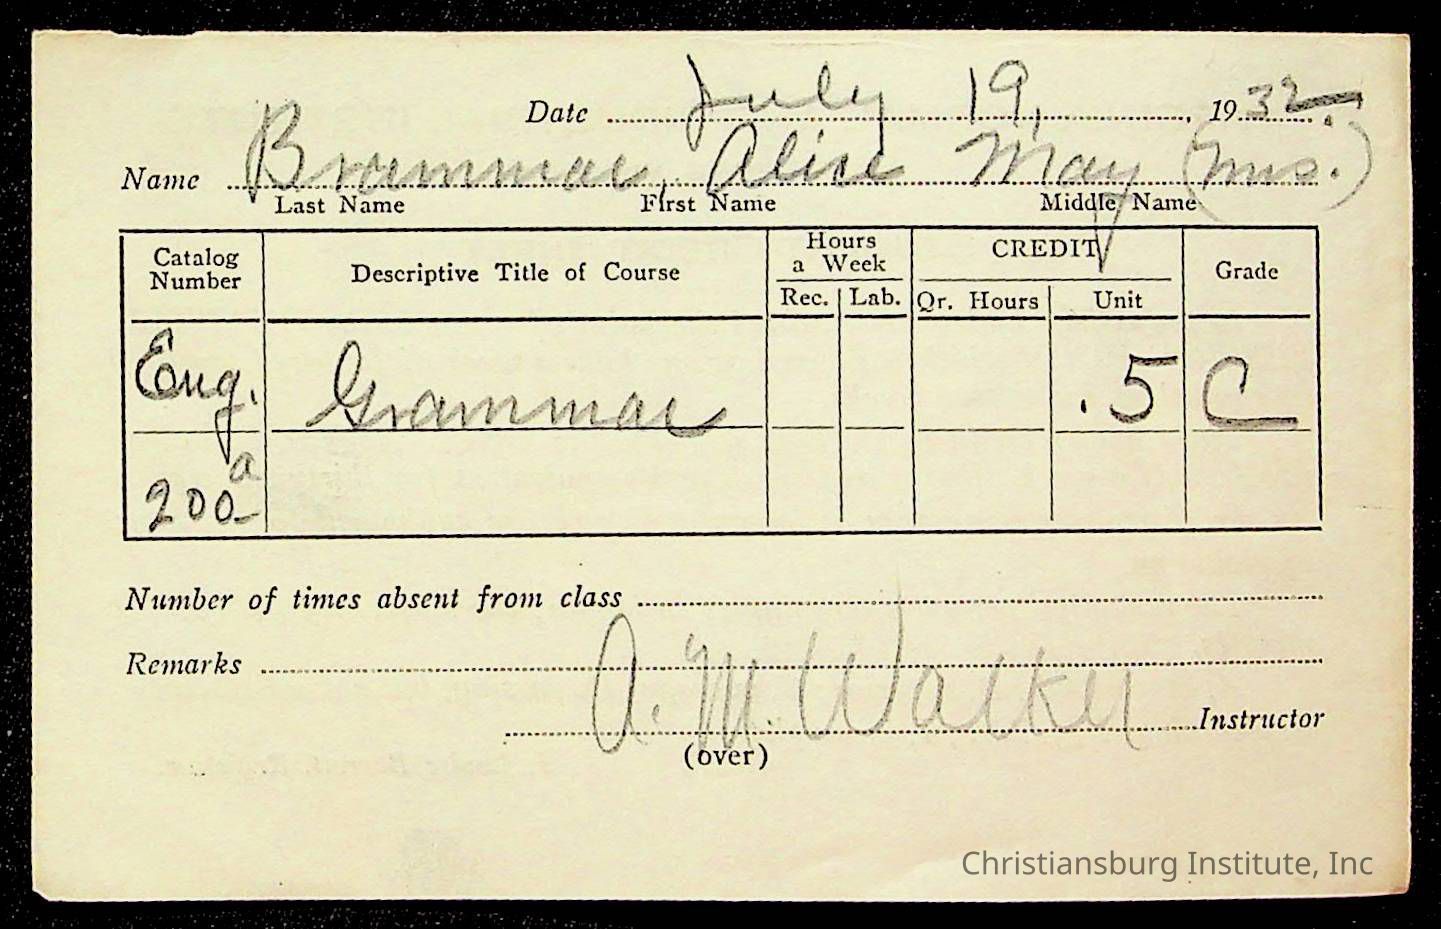 Date July 19, 1932.
Name Brammar, Alice May (Mrs.)
Last Name First Name Middle Name
Catalog Number Descriptive Title of Course Hours a Week CREDIT Grade
Rec. Lab. Qr. Hours Unit
Eng. Grammar .5 C
200a
Number of times absent from class
Remarks
A. M. Walker Instructor
(over)
Christiansburg Institute, Inc